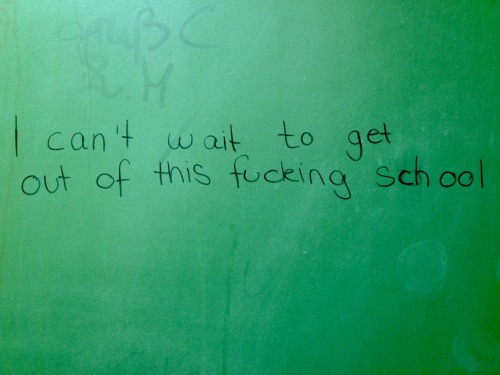 I can't wait to get
out of this fucking school